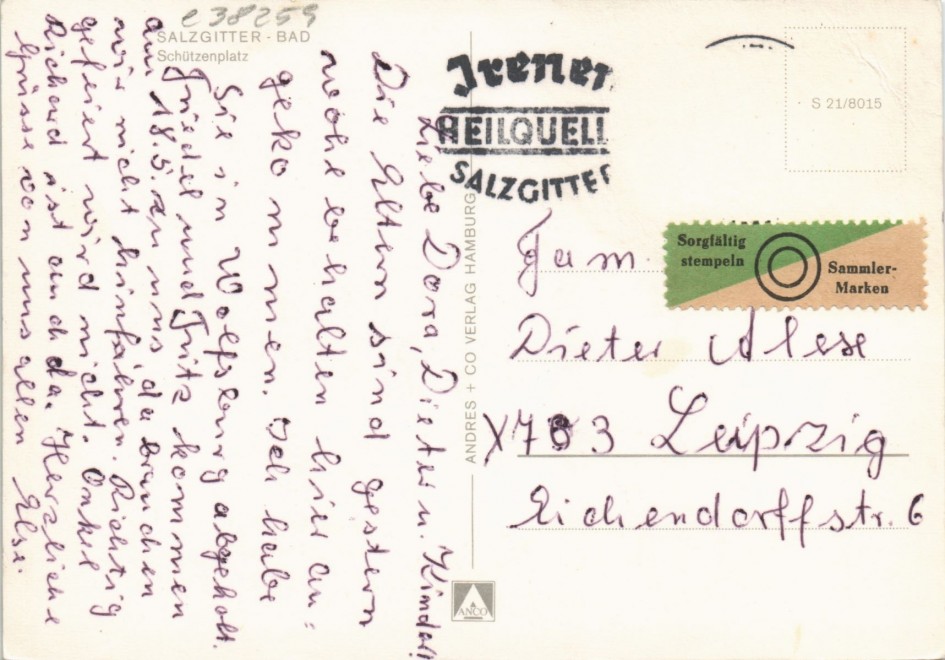 e38259
SALZGITTER - BAD
Schützenplatz
Liebe Dora, Dieter u. Kinder!
Die Eltern sind gestern
wohl behalten hier an=
gekommen. Ich habe
Sie in Wolfsburg abgeholt.
Friedel und Fritz kommen
am 18.5. zu uns, da brauchen
wir nicht hinfahren. Richtig
gefeiert wird nicht. Onkel
Richard ist auch da. Herzliche
Grüsse von uns allen Else.
ANDRES + CO VERLAG HAMBURG
ANCO
Irener
HEILQUELL
SALZGITTER
S 21/8015
Sorgfältig
stempeln
Sammler-
Marken
Fam.
Dieter Alese
X703 Leipzig
Eichendorffstr. 6